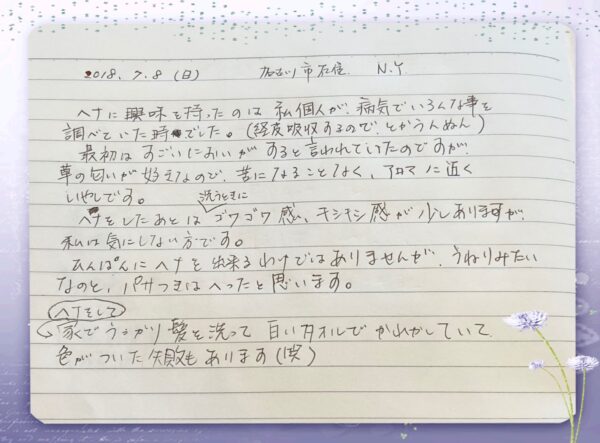 2018.7.8(日) 加古川市在住 N.Y
ヘナに興味を持ったのは私個人が、病気でいろんな事を
調べていた時でした。(経皮吸収するので、とかうんぬん)
最初はすごいにおいがすると言われていたのですが、
草の匂いが好えなので、苦になることなく、アロマに近く
いやしです。
洗うときに
ヘナをしたあとはゴワゴワ感、キシキシ感が少しありますが、
私は気にしない方です。
ひんぱんにヘナを出来るわけではありませんが、うねりみたい
なのと、パサつきはへったと思います。
ヘナをして
家でうっかり髪を洗って白いタオルでかわかしていて、
色がついた失敗もあります(笑)